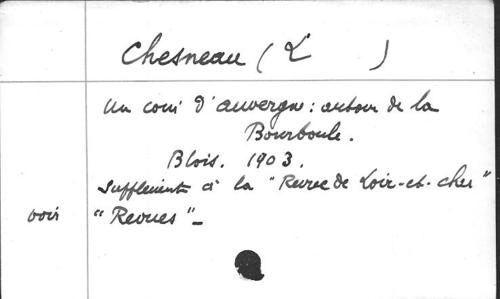 Chesneau (L )
Un coin d'Auvergne : autour de la
Bourboule.
Blois. 1903.
Supplément à la "Revue de Loir-et-cher"
voir "Revues" –